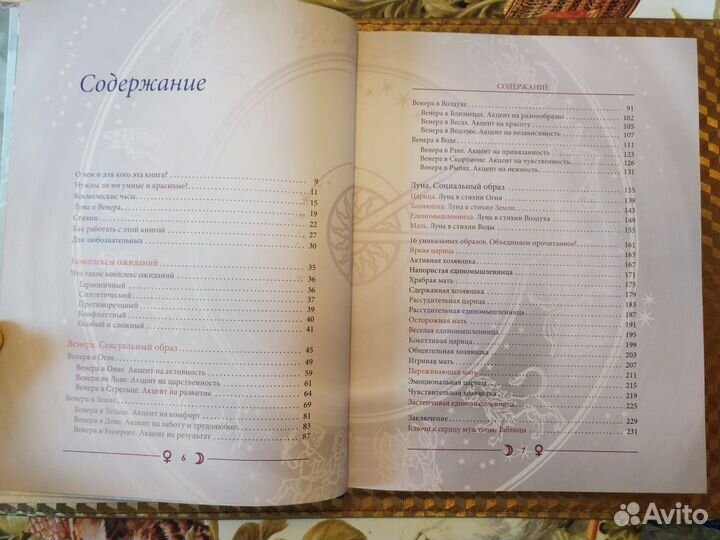 Содержание
О чем и для кого эта книга? 9
Нужны ли им умные и красивые? 11
Космические часы 15
Луна и Венера 19
Стихии 22
Как работать с этой книгой 27
Для любознательных 30
Комплексы ожиданий 35
Что такое комплекс ожиданий 36
Гармоничный 36
Синтетический 37
Противоречивый 39
Конфликтный 40
Особый и сложный 41
Венера. Сексуальный образ 45
Венера в Огне 49
Венера в Овне. Акцент на активность 59
Венера во Льве. Акцент на царственность 61
Венера в Стрельце. Акцент на развитие 64
Венера в Земле 69
Венера в Тельце. Акцент на комфорт 81
Венера в Деве. Акцент на заботу и трудолюбие 83
Венера в Козероге. Акцент на результат 87
♀ 6 ☽
СОДЕРЖАНИЕ
Венера в Воздухе 91
Венера в Близнецах. Акцент на разнообразие 102
Венера в Весах. Акцент на красоту 105
Венера в Водолее. Акцент на независимость 107
Венера в Воде 111
Венера в Раке. Акцент на привязанность 123
Венера в Скорпионе. Акцент на чувственность 126
Венера в Рыбах. Акцент на нежность 131
Луна. Социальный образ 135
Царица. Луна в стихии Огня 139
Хозяюшка. Луна в стихии Земли 143
Единомышленница. Луна в стихии Воздуха 149
Мать. Луна в стихии Воды 155
16 уникальных образов. Объединяем прочитанное! 161
Яркая царица 163
Активная хозяюшка 167
Напористая единомышленница 171
Храбрая мать 175
Сдержанная хозяюшка 179
Рассудительная царица 183
Рассудительная единомышленница 187
Осторожная мать 191
Веселая единомышленница 195
Кокетливая царица 199
Общительная хозяюшка 203
Игривая мать 207
Переживающая мать 211
Эмоциональная царица 215
Чувствительная хозяюшка 219
Застенчивая единомышленница
Заключение 229
Ключи к сердцу мужчины. Таблицы 231
☽ 7 ♀
Avito